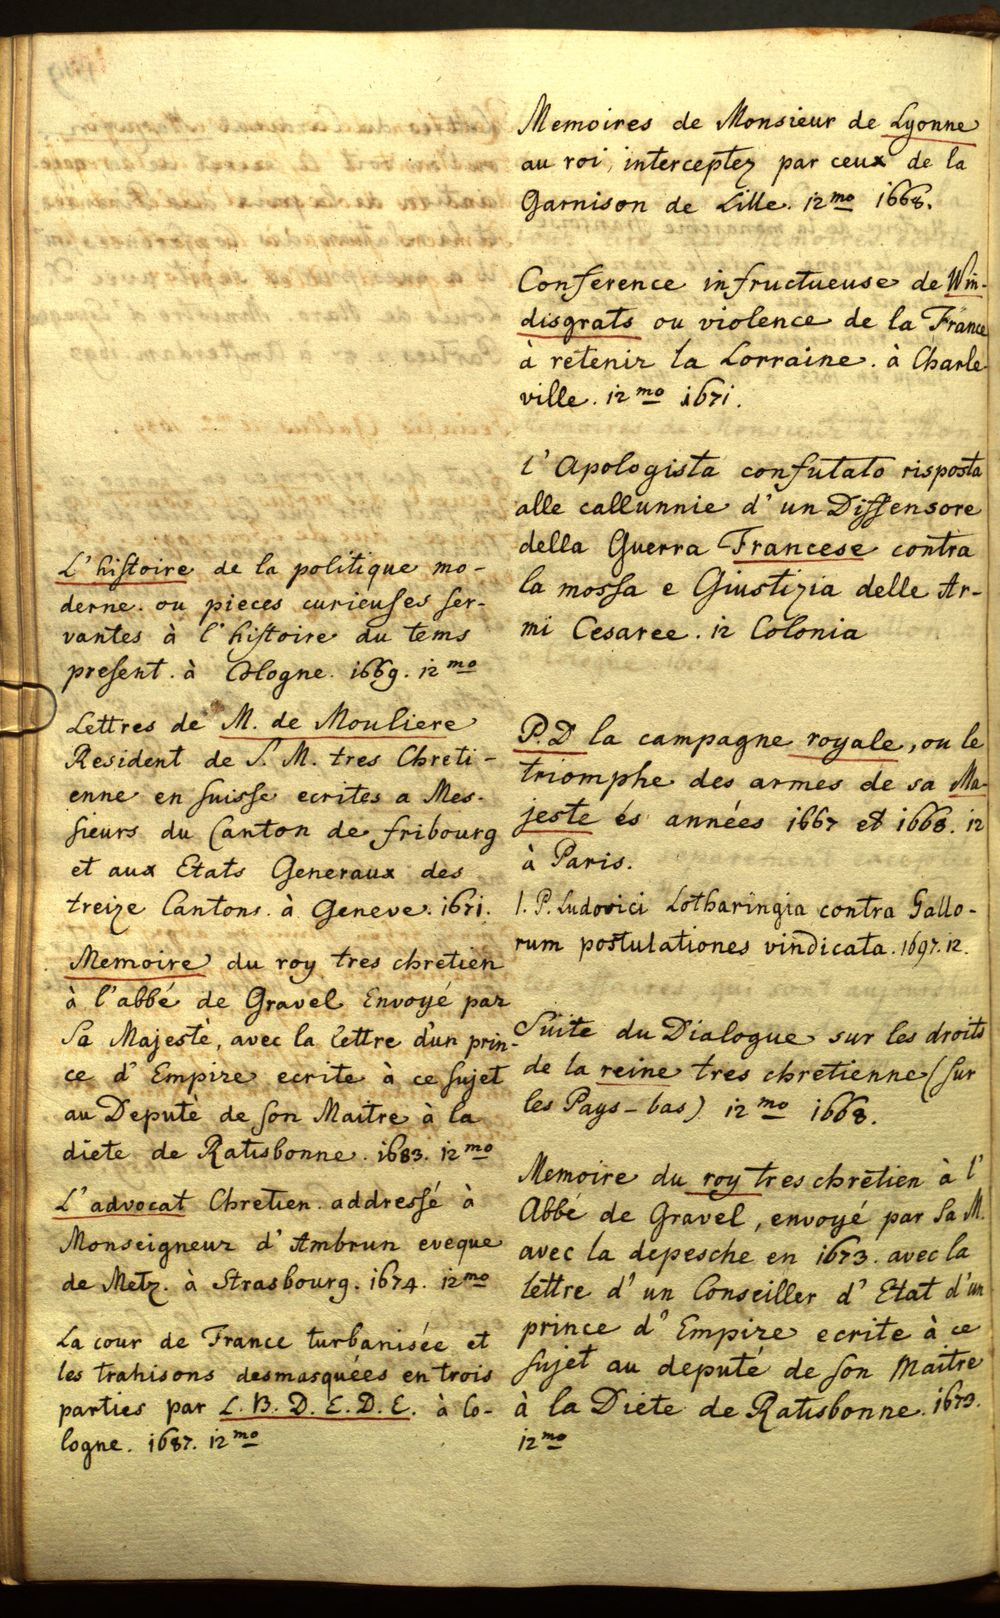 L'histoire de la politique mo-
derne. ou pieces curieuses ser-
vantes à l'histoire du tems
present. à Cologne. 1669. 12mo
Lettres de M. de Mouliere
Resident de S. M. tres Chreti-
enne en suisse ecrites a Mes-
sieurs du Canton de fribourg
et aux Etats Generaux des
treize Cantons. à Geneve. 1671.
Memoire du roy tres chretien
à l'abbé de Gravel Envoyé par
Sa Majesté, avec la lettre d'un prin-
ce d'Empire ecrite à ce sujet
au Deputé de son Maitre à la
diete de Ratisbonne. 1683. 12mo
L'advocat Chretien addressé à
Monseigneur d'Ambrun eveque
de Metz. à Strasbourg. 1674. 12mo
La cour de France turbanisée et
les trahisons desmasquées en trois
parties par L. B. D. E. D. E. à Co-
logne. 1687. 12mo
Memoires de Monsieur de Lyonne
au roi, interceptez par ceux de la
Garnison de Lille. 12mo 1668.
Conference infructueuse de Win-
disgrats ou violence de la France
à retenir la Lorraine. à Charle-
ville. 12mo 1671.
l'Apologista confutato risposta
alle callunnie d'un Diffensore
della Guerra Francese contra
la mossa e Giustizia delle Ar-
mi Cesaree. 12 Colonia
P. D la campagne royale, ou le
triomphe des armes de sa Ma-
jeste és années 1667 et 1668. 12
à Paris.
I. P. Ludovici Lotharingia contra Gallo-
rum postulationes vindicata. 1697. 12.
Suite du Dialogue sur les droits
de la reine tres chretienne (sur
les Pays-bas) 12mo 1668.
Memoire du roy tres chretien à l'
Abbé de Gravel, envoyé par Sa M.
avec la depesche en 1673. avec la
lettre d'un Conseiller d'Etat d'un
prince d'Empire ecrite à ce
sujet au deputé de son Maitre
à la Diete de Ratisbonne. 1673.
12mo